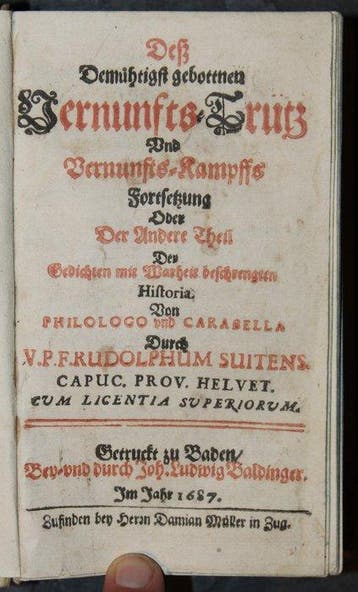 Deß
Demühtigst gebottnen
Vernunfts-Trutz
Und
Vernunfts-Kampffs
Fortsetzung
Oder
Der Andere Theil
Der
Gedichten mit Warheit beschrengten
Historia,
Von
PHILOLOGO vnd CARABELLA
Durch
V. P. F. RUDOLPHUM SUITENS.
CAPUC. PROV. HELVET.
CUM LICENTIA SUPERIORUM.
Getruckt zu Baden/
Bey-vnd durch Joh. Ludwig Baldinger.
Im Jahr 1687.
Zufinden bey Herrn Damian Müller in Zug.